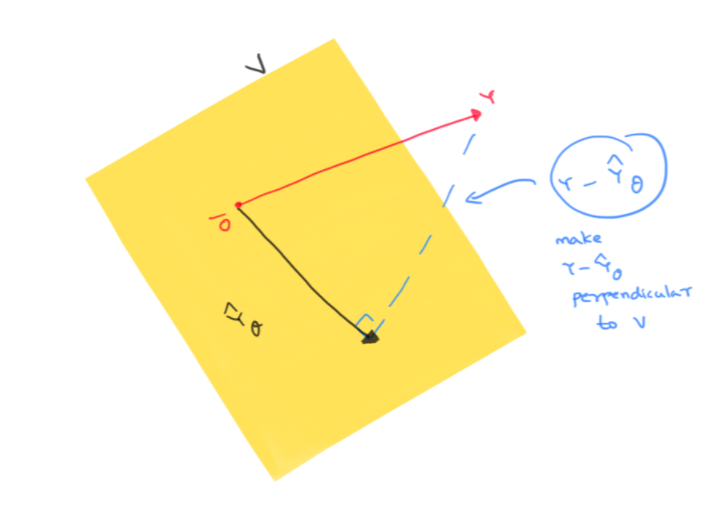 V
Y
0̄
Ŷ_θ
Y - Ŷ_θ
make
Y - Ŷ_θ
perpendicular
to V